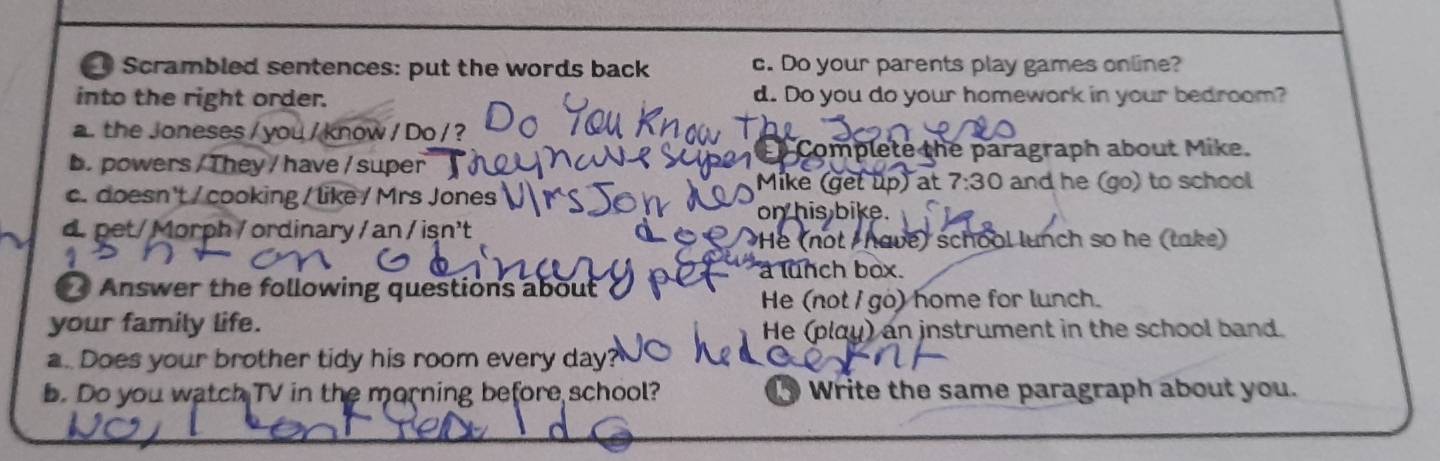 1 Scrambled sentences: put the words back
into the right order.
a. the Joneses / you / know / Do / ? Do You Know The Joneses
b. powers / They / have / super They have super powers
c. doesn't / cooking / like / Mrs Jones Mrs Jon nes
does like
d. pet / Morph / ordinary / an / isn't
isnt an obinary pet
2 Answer the following questions about
your family life.
a. Does your brother tidy his room every day? No he
b. Do you watch TV in the morning before school?
No, I I do
c. Do your parents play games online?
d. Do you do your homework in your bedroom?
3 Complete the paragraph about Mike.
Mike (get up) at 7:30 and he (go) to school
on his bike.
He (not / have) school lunch so he (take)
a lunch box.
He (not / go) home for lunch.
He (play) an instrument in the school band.
4 Write the same paragraph about you.